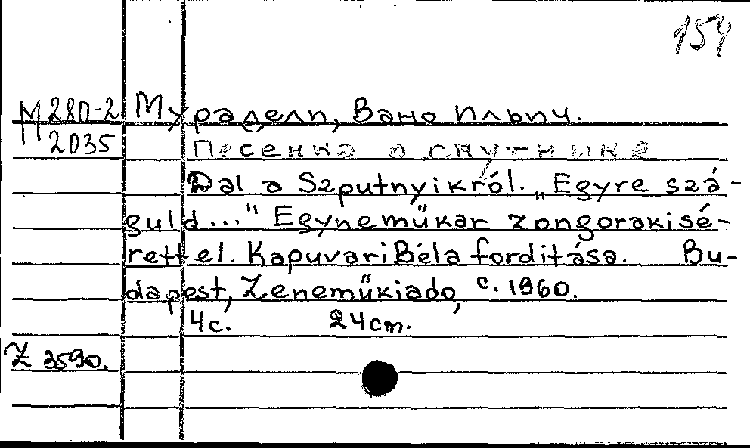 154
M 280-2 Мурадели, Вано Ильич.
2035 Песенка о спутнике
Dal a Szputnyikról. „Egyre szá-
guld..." Egyneműkar zongorakisé-
rettel. Kapuvari Béla forditása. Bu-
dapest, Zeneműkiado, c. 1960.
4c. 24cm.
Z 3590.